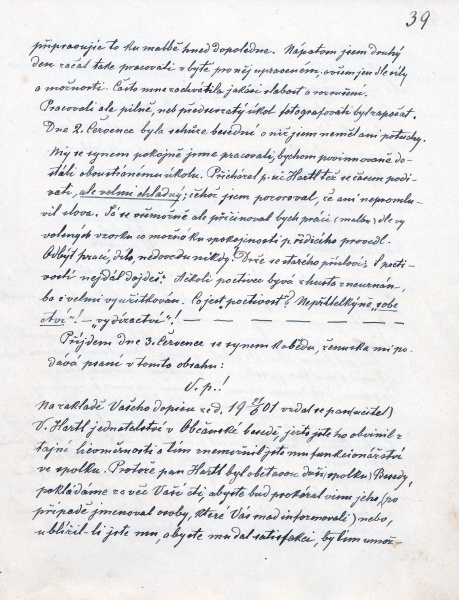 39
připravujíc to ku malbě hned dopoledne. Nápotom jsem druhý
den začal také pracovati v bytě pro něj upraveném, ovšem jen dle síly
a možnosti. Často mne zachvátila jakási slabost a mrazení.
Pracovali ale pilně, neb předsevzatý úkol fotografovati byl započat.
Dne 2. Července byla schůze besední o níž jsem neměl ani potuchy.
My se synem pokojně jsme pracovali, bychom povinnosti do-
stáli oboustrannému úkolu. Přicházel p. uč. Hartl též se časem podí-
vati, ale velmi chladný; ichž jsem pozoroval, že ani nepromlu-
vil slova. Já se všemožně ale přičinoval bych práci (malbu) dle vy-
volených vzorků co možno ku spokojenosti p. řídícího provedl.
Odbýt práci, dílo, nedovedu nikdy! Dvře se starého přísloví: S pocti-
vostí nejdál dojdeš. Ačkoli poctivec bývá zhusta zneuznán,
ba i velmi využitkován. Co jest „poctivost"? Nepřítelkyně „sobe-
ctví"! — „vyděračství"! —
Přijdem dne 3. Července se synem k obědu, ženuska mi po-
dává psaní v tomto obsahu:
V. p.!
Na základě Vašeho dopisu ze d. 19 27/6 01 vzdal se pan (učitel)
V. Hartl jednatelství v Občanské besedě, ježto jste ho obvinil z
tajné lícoměrnosti a tím znemožnil jste mu funkcionářství
ve spolku. Protože pan Hartl byl obětavou duší (spolku) Besedy,
pokládáme za věc Vaší cti, abyste buď prokázal vinu jeho, (po
případě jmenoval osoby, které Vás snad informovali) nebo,
ublížil-li jste mu, abyste mu dal satisfakci, by tím umož-